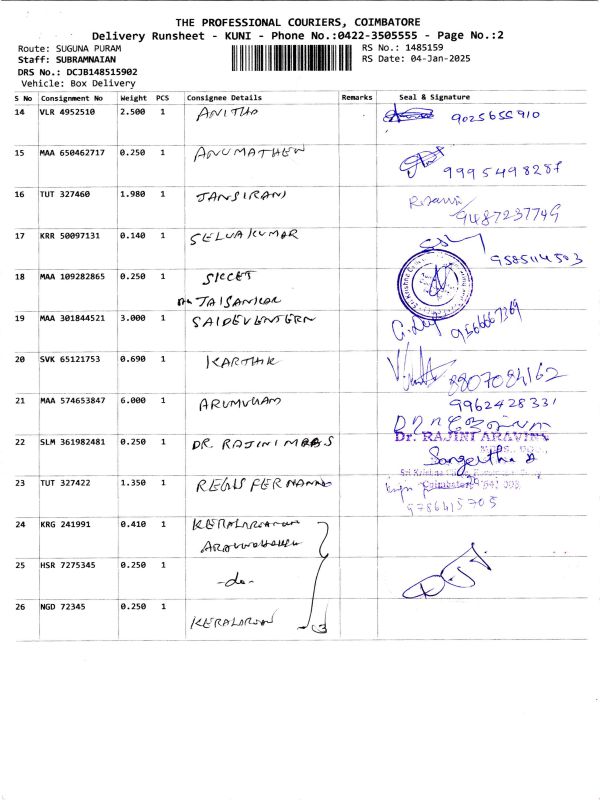 THE PROFESSIONAL COURIERS, COIMBATORE
Delivery Runsheet - KUNI - Phone No.:0422-3505555 - Page No.:2
Route: SUGUNA PURAM RS No.: 1485159
Staff: SUBRAMNAIAN RS Date: 04-Jan-2025
DRS No.: DCJB148515902
Vehicle: Box Delivery
S No Consignment No Weight PCS Consignee Details Remarks Seal & Signature
14 VLR 4952510 2.500 1 ANITHA 9025655910
15 MAA 650462717 0.250 1 ANUMATHEW 9995498287
16 TUT 327460 1.980 1 JANSIRANI 9487237749
17 KRR 50097131 0.140 1 SELVAKUMAR 9585114503
18 MAA 109282865 0.250 1 SKCET
JAISANKAR
19 MAA 301844521 3.000 1 SAIDEVENTERN 9566667369
20 SVK 65121753 0.690 1 KARTHIK 8807084162
21 MAA 574653847 6.000 1 ARUMUGAM 9962428331
22 SLM 361982481 0.250 1 DR. RAJINI Dr. RAJINI ARAVIN
Sangeetha
23 TUT 327422 1.350 1 REGIS FERNANDO Coimbatore 641 008
9786415705
24 KRG 241991 0.410 1
25 HSR 7275345 0.250 1 -do-
26 NGD 72345 0.250 1